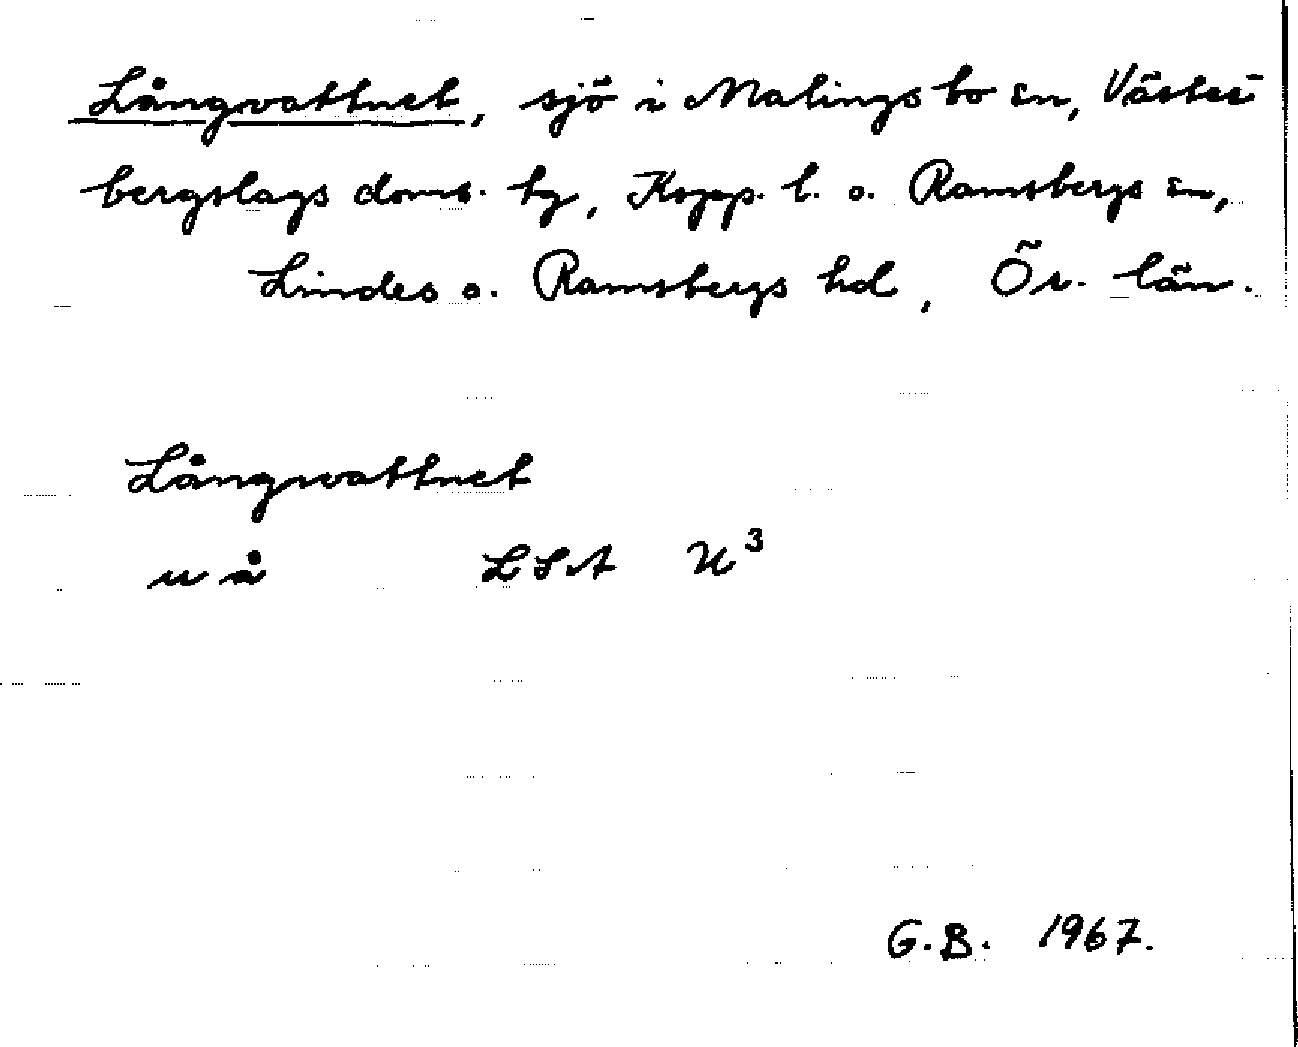 Långvattnet, sjö i Malingsbo sn, Väster-
bergslags doms. tg, Kopp. l. o. Ramsbergs sn,
Lindes o. Ramsbergs hd, Ör. län.
Långvattnet
u å LSA U³
G.B. 1967.